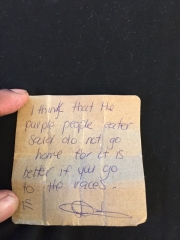 I think that the
purple people eater
said do not go
home for it is
better if you go
to the races.